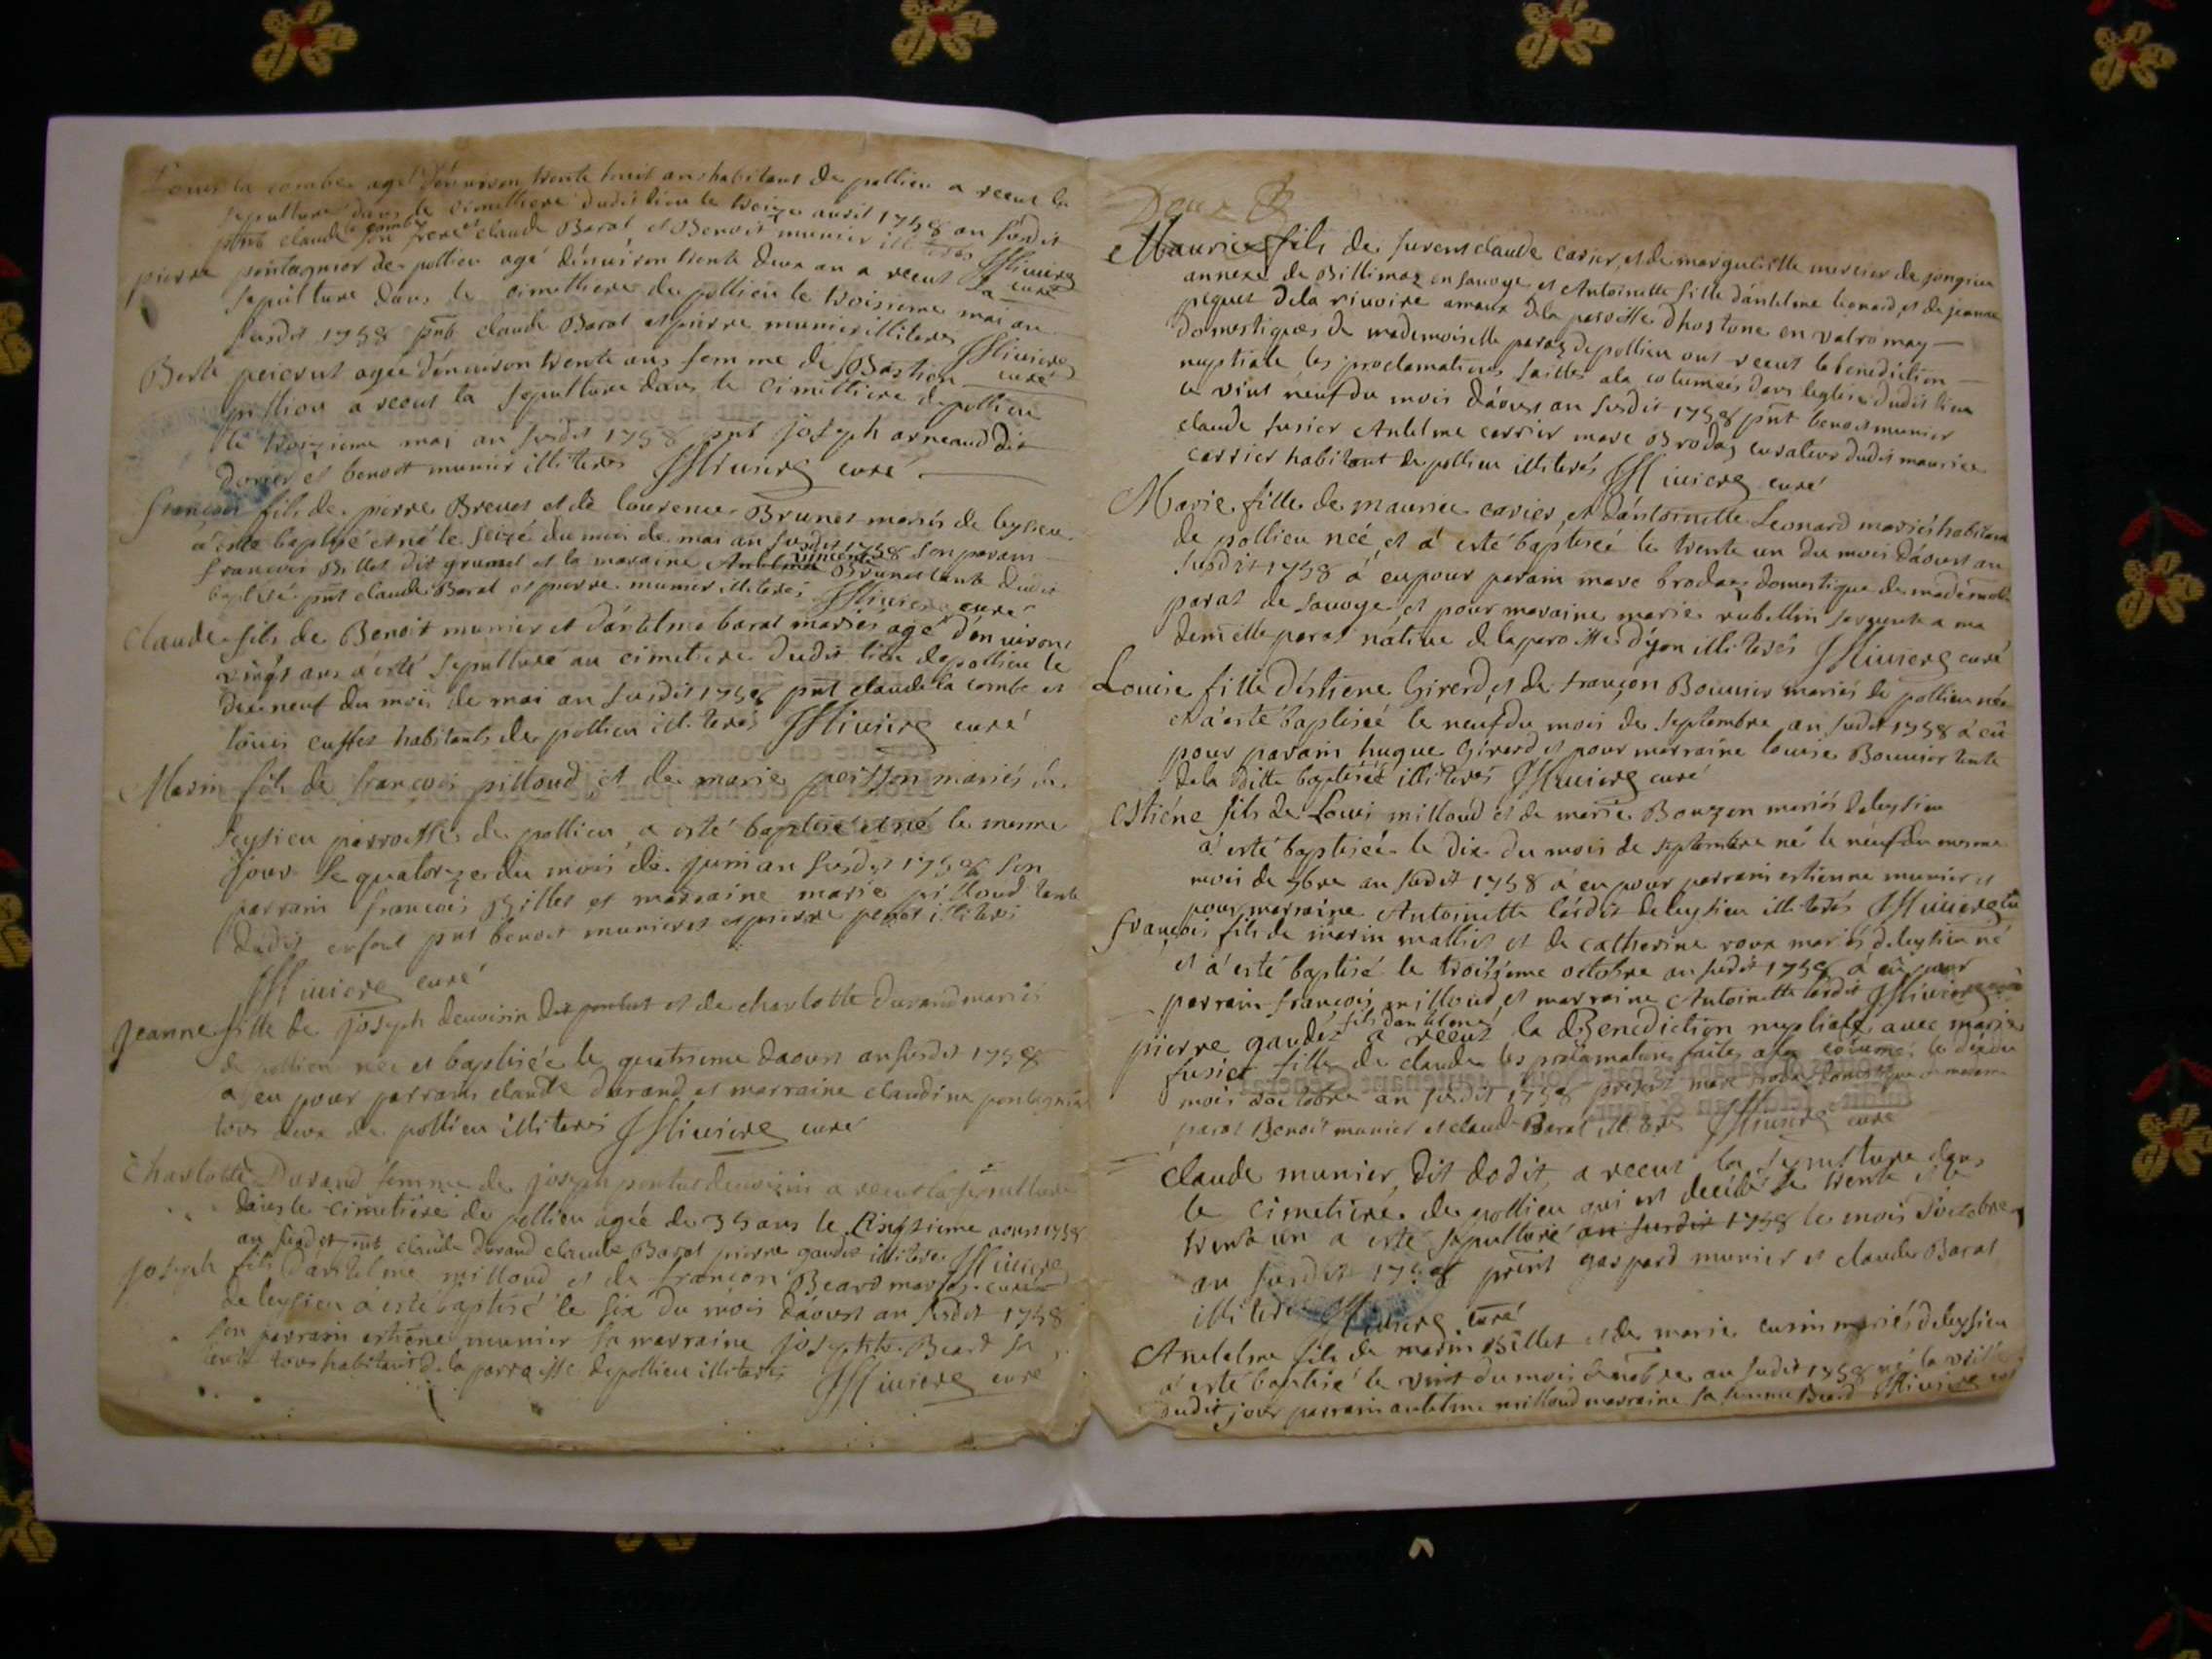 Louis la combe agé d'énuiron trente huit ans habitant de pollieu a receut la
sepulture dans le cimettiere dudit lieu le treize auril 1758 an susdit
pnt claude la combe son frere et claude Barat et Benoit munier illiteres JHiuiere
pierre pontagnier de pollieu agé dénuiron trente deux an a receut La curé
sepulture dans le cimettiere de pollieu le troisieme mai an
susdit 1758 pnt claude Barat et pierre munier illiteres JHiuiere
Berte peicrut agée dénuiron trente ans femme de sebastien curé
pillion a receut la sepulture dans le cimettiere de pollieu
le troizieme mai an susdit 1758 pnt joseph arneaud dit
et benoit munier illiteres JHiuiere curé
françois fils de pierre Breuet et de laurence Brunet mariés de leysieu
a esté baptisé et né le seize du moi de mai an susdit 1758 son parain
francois Billet dit grumet et la maraine vincente Brunet tante dudit
baptisé pnt claude Barat et pierre munier illiterés JHiuiere curé
claude fils de Benoit munier et d'antelma barat mariés agé d'enuiron
vingt ans a esté sepulturé au cimetiere dudit lieu de pollieu le
dixneuf du mois de mai an susdit 1758 pnt claude la combe et
louis cuffet habitants de pollieu illiterés JHiuiere curé
Marin fils de françois pilloud et de marie poisson mariés de
leysieu parroisse de pollieu a esté baptisé et né le mesme
jour le quatorze du mois de juin an susdit 1758 son
parrain francois Billet et marraine marie pilloud tante
dudit enfant pnt benoit munier et pierre penet illiteres
JHiuiere curé
jeanne fille de joseph deuoisin dit pontut et de charlotte durand mariés
de pollieu née et baptisée le quatrieme daoust an susdit 1758
a eu pour parrains claude durand et marraine claudine pontagnier
tous deux de pollieu illiteres JHiuiere curé
charlotte Durand femme de joseph pontut deuoisin a receut la sepulture
dans le cimetiere de pollieu agée de 35 ans le Cinqsieme aoust 1758
an susdit pnt claude durand claude Barat pierre gaudet illiteres JHiuiere
joseph fils d'antelme milloud et de françon Beard mariés curé
de leysieu a esté baptisé le six du mois daoust an susdit 1758
son parrain estiéne munier sa marraine josephte Beard sa
tante tous habitant de la parroisse de pollieu illiteres JHiuiere curé
Deux B
Maurice fils de claude carier et de marguerite mercier de jongieu
annexe de Billimaz en sauoye et Antoinette fille dántelme leonard et de jeanne
peguet de la riuoire amaux de la paroisse dhostone en valromay
domestiques de mademoiselle paraz de pollieu ont receut la benediction
nuptiale les proclamations faittes ala cotumée dans leglise dudit lieu
le vint neuf du mois daoust an susdit 1758 pnt benoit munier
claude fusier Antelme carrier marc Brodaz curateur dudit maurice
carrier habitant de pollieu illiterés JHiuiere curé
Marie fille de maurice carier et dántoinette Leonard mariés habitans
de pollieu née et a esté baptisée le trente un du mois daoust an
susdit 1758 a eu pour parain marc brodaz domestique de mademoile
parat de sauoye et pour maraine marie rubellin seruante a ma
demelle parat nátiue de la paroisse dyon illiterés JHiuiere curé
Louise fille d'éstiene Girerd et de françon Bouuier mariés de pollieu née
et a esté baptisée le neuf du mois de septembre an sudit 1758 a eu
pour parain hugue Girerd et pour marraine louise Bouuier tante
de la ditte baptisée illiterés JHiuiere curé
Estiéne fils de Loui milloud et de marie Bouzon mariés de leysieu
a esté baptisé le dix du mois de septembre né le neuf du mesme
mois de 7bre an sudit 1758 a eu pour parrain estienne munier et
pour marraine Antoinette lardit de leysieu illiterés JHiuiere cu
François fils de marin malliet et de catherine roux mariés de leysieu né
et a esté baptisé le troisieme octobre an susdit 1758 a eu pour
parrain françois milloud et marraine Antoinette lardit JHiuiere curé
pierre gaudet fils dantelme a receut la Benediction nuptiale auec marie
fusier fille de claude les proclamations faites ala cotumé le dix du
mois doctobre an susdit 1758 present marc brodaz domestique de madem
parat Benoit munier et claude Barat illiteres JHiuiere curé
claude munier dit dodit a receut la sepulture dans
le cimetiere de pollieu qui est decedé le trente et le
trent un a esté sepulturé an susdit 1758 le mois d'octobre
an susdit 1758 present gaspard munier et claude Barat
illiteres JHiuiere curé
Antelme fils de marin Billet et de marie cusin mariés de leysieu
a esté baptisé le vint du mois de nobre an sudit 1758 né la veille
dudit jour parrain antelme milloud marraine sa femme Beard JHiuiere curé